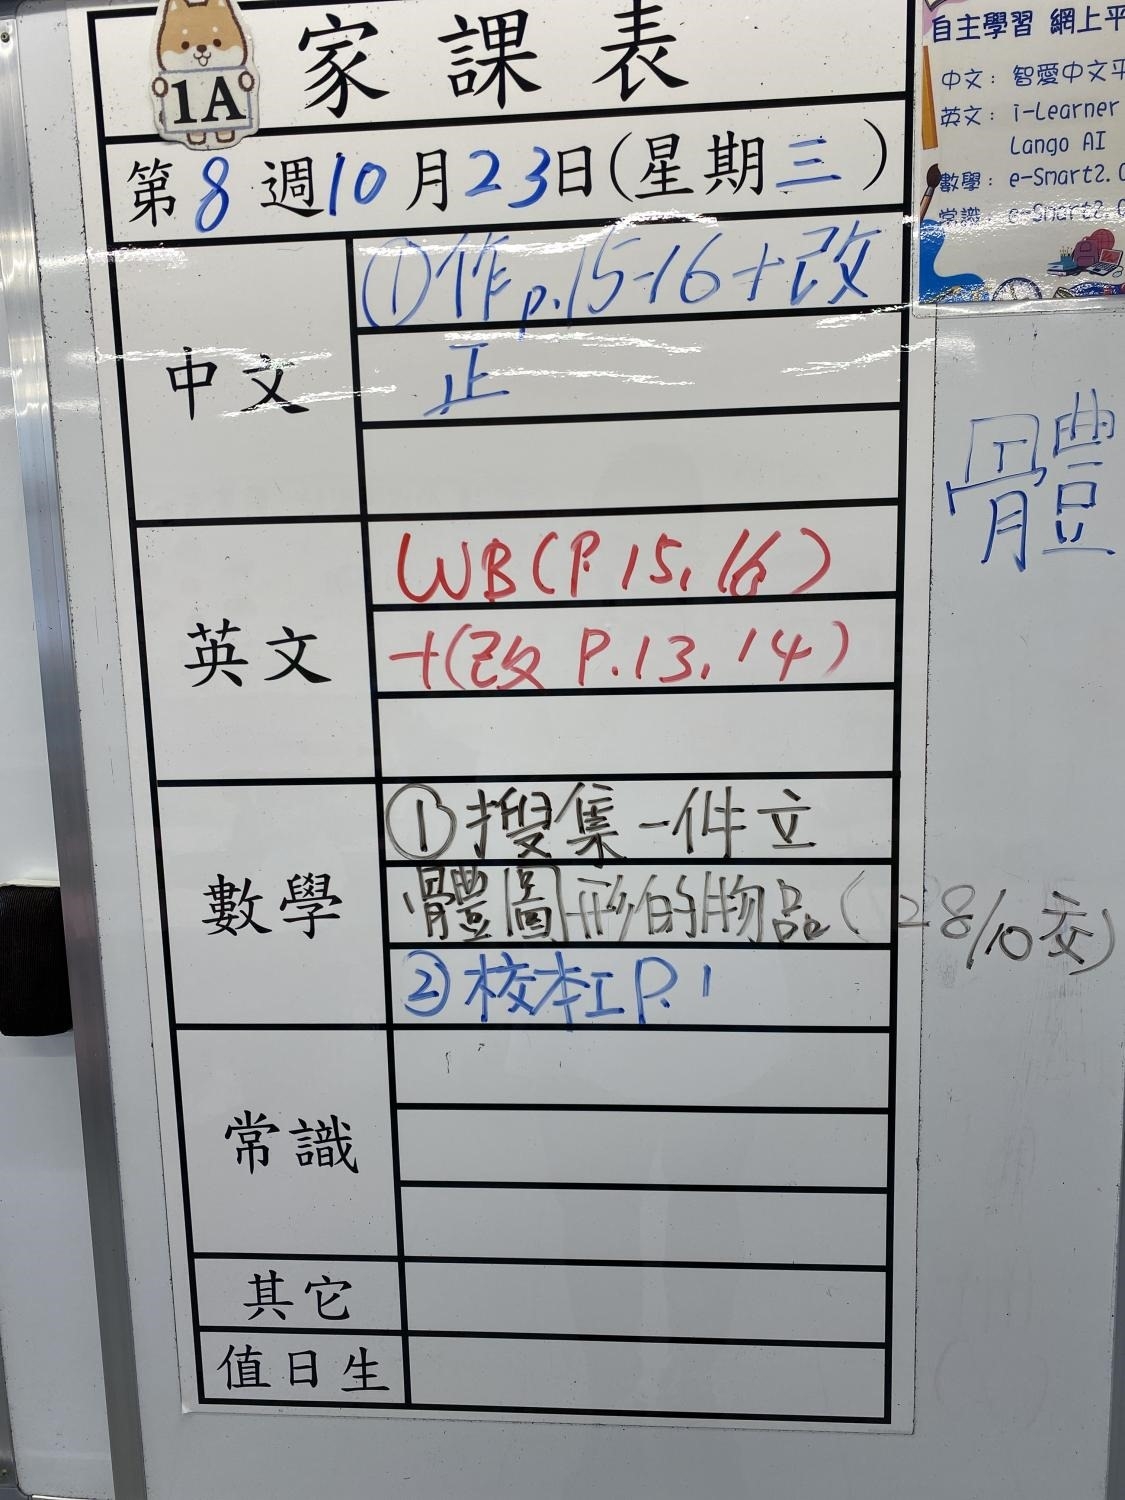 1A
家課表
第8週10月23日(星期三)
中文
①作p.15-16+改
正
英文
WB(P.15,16)
+(改 P.13,14)
數學
①搜集一件立
體圖形的物品(28/10交)
②校本工P.1
常識
其它
值日生
自主學習 網上平
中文：智愛中文平
英文：i-Learner
Lango AI
數學：e-Smart2.0
常識：e-Smart2.0
體